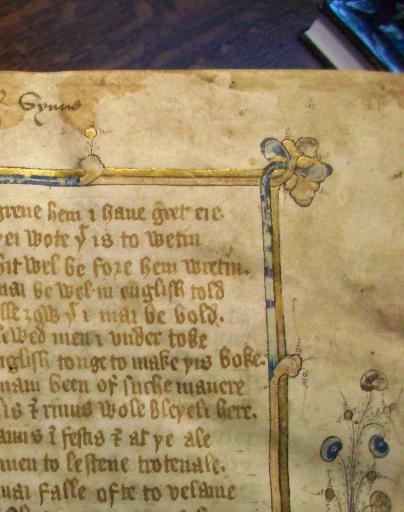 Synus
hem i haue gret eie.
wote yͭ is to wetin
wel be fore hem wretin.
be wel in english told
ȝow yͭ i mai be bold.
men i vnder toke
tonge to make yis boke.
been of suche manere
⁊ rimus wole bleyeli here.
i festis ⁊ at ye ale
men to lestene trotenale.
falle ofte to velanie